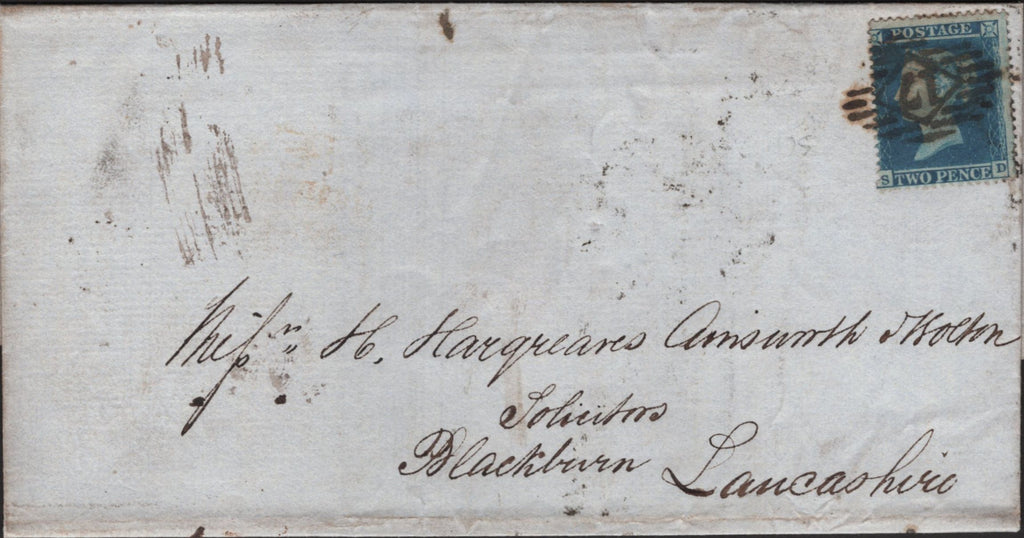 POSTAGE
1
S TWO PENCE D
Messrs H. Hargreaves Ainsworth & Holton
Solicitors
Blackburn Lancashire